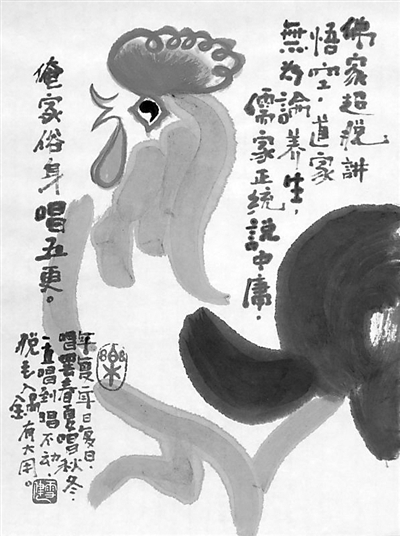 佛家超脱讲
悟空，道家
無为論养生，
儒家正统說中庸.
俺家俗身唱五更。
年复一年日复日.
唱罢春夏唱秋冬.
一直唱到唱不动.
脱毛入锅有大用。